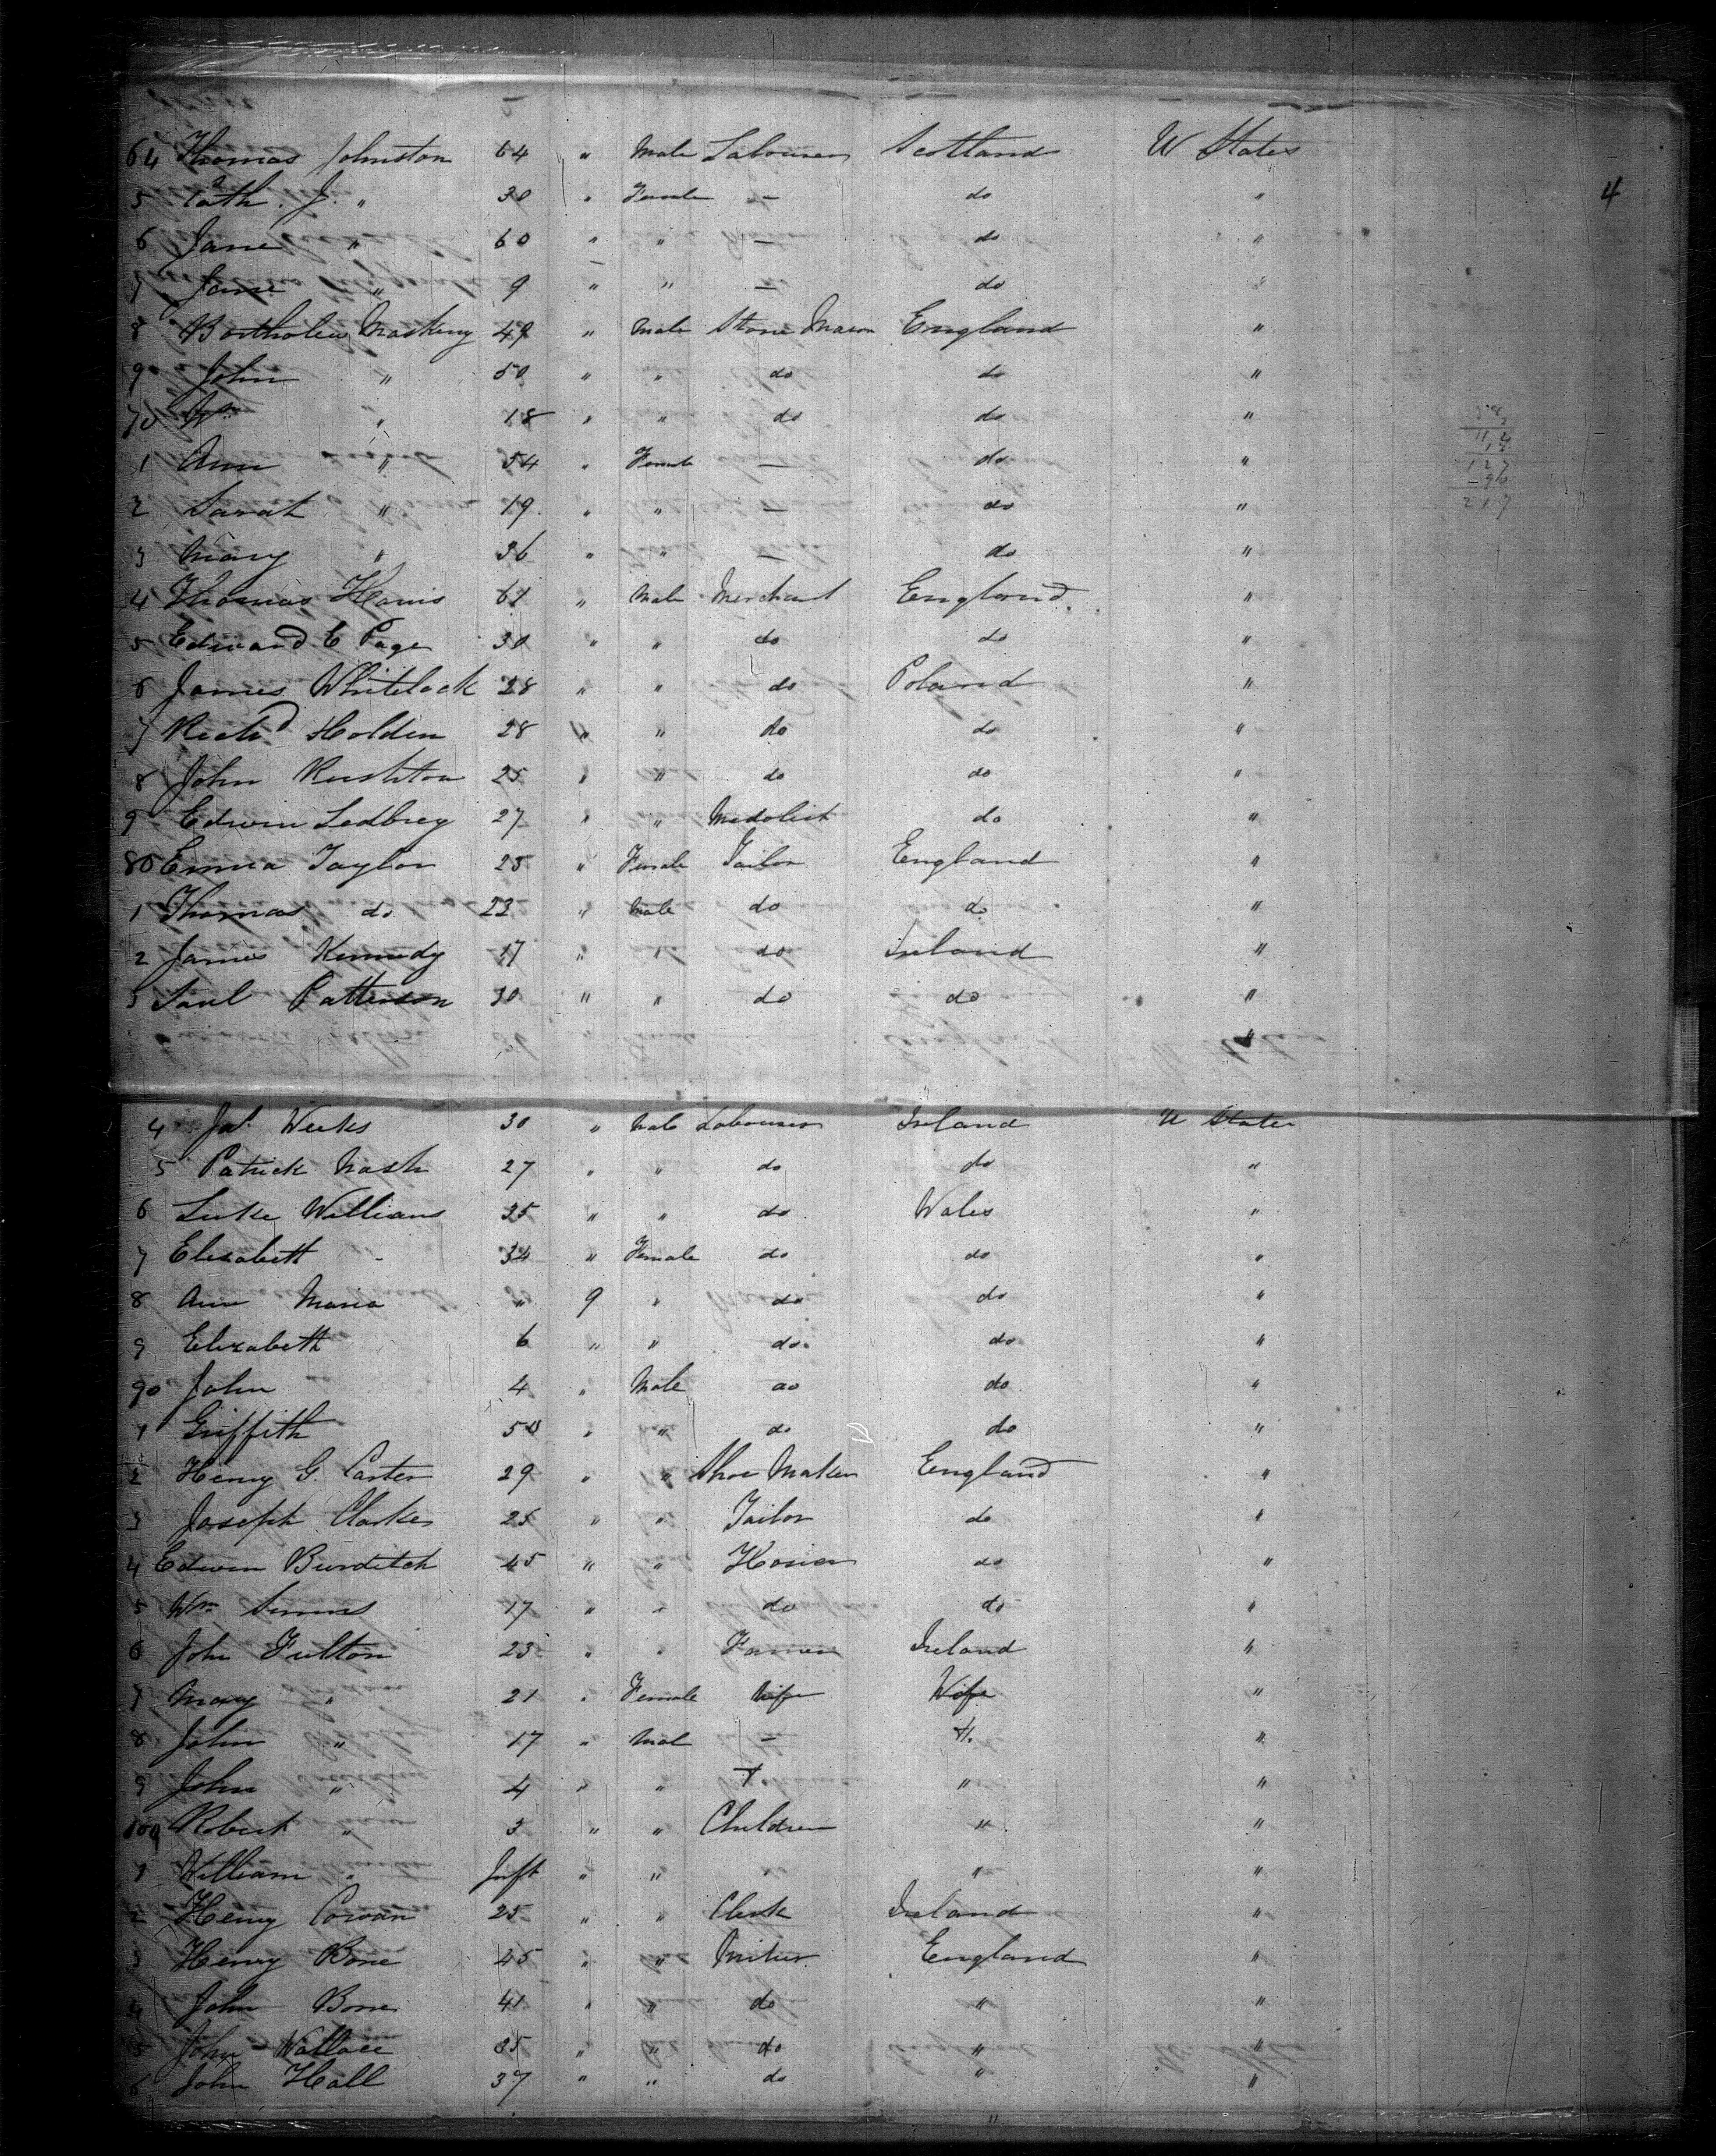 64 Thomas Johnston 64 " Male Labourer Scotland U States
4
5 Cath. J. " 30 " Female - do "
6 Jane " 60 " " - do "
7 Jane " 9 " " - do "
8 Bartholew Maskery 49 " Male Stone Mason England "
9 John " 50 " " do do "
70 Wm " 18 " " do do "
1 Ann " 54 " Female - do "
2 Sarah " 19 " " - do "
3 Mary " 36 " " - do "
4 Thomas Harris 61 " Male Merchant England "
5 Edward E Page 30 " " do do "
6 James Whitelock 28 " " do Poland "
7 Richd Holden 28 " " do do "
8 John Rushton 25 " " do do "
9 Edwin Ledbrey 27 " " do "
80 Emma Taylor 25 " Female Tailor England "
1 Thomas do 23 " Male do do "
2 James Kennedy 17 " " do Ireland "
3 Saml Patterson 30 " " do do "
"
4 Jas. Weeks 30 " Male Labourer Ireland U States
5 Patrick Nash 27 " " do do "
6 Luke Williams 35 " " do Wales "
7 Elizabeth - 34 " Female do do "
8 Ann Maria " 9 " do do "
9 Elizabeth 6 " " do do "
90 John 4 " Male do do "
1 Griffith 50 " " do do "
2 Henry G. Carter 29 " " Shoe Maker England "
3 Joseph Clarke 25 " " Tailor do "
4 Edwin Burditch 45 " " Hosier do "
5 Wm Simms 17 " " do do "
6 John Fulton 23 " " Farmer Ireland "
7 Mary " 21 " Female Wife Wife "
8 John " 17 " Mal - "
9 John " 4 " " "  "
100 Robert " 3 " " Children " "
1 William " Inft " " " " "
2 Henry Cowan 25 " " Clerk Ireland "
3 Henry Bone 45 " " Miner England "
4 John Bone 41 " " do " "
5 John Wallace 35 " " do " "
6 John Hall 37 " " do " "